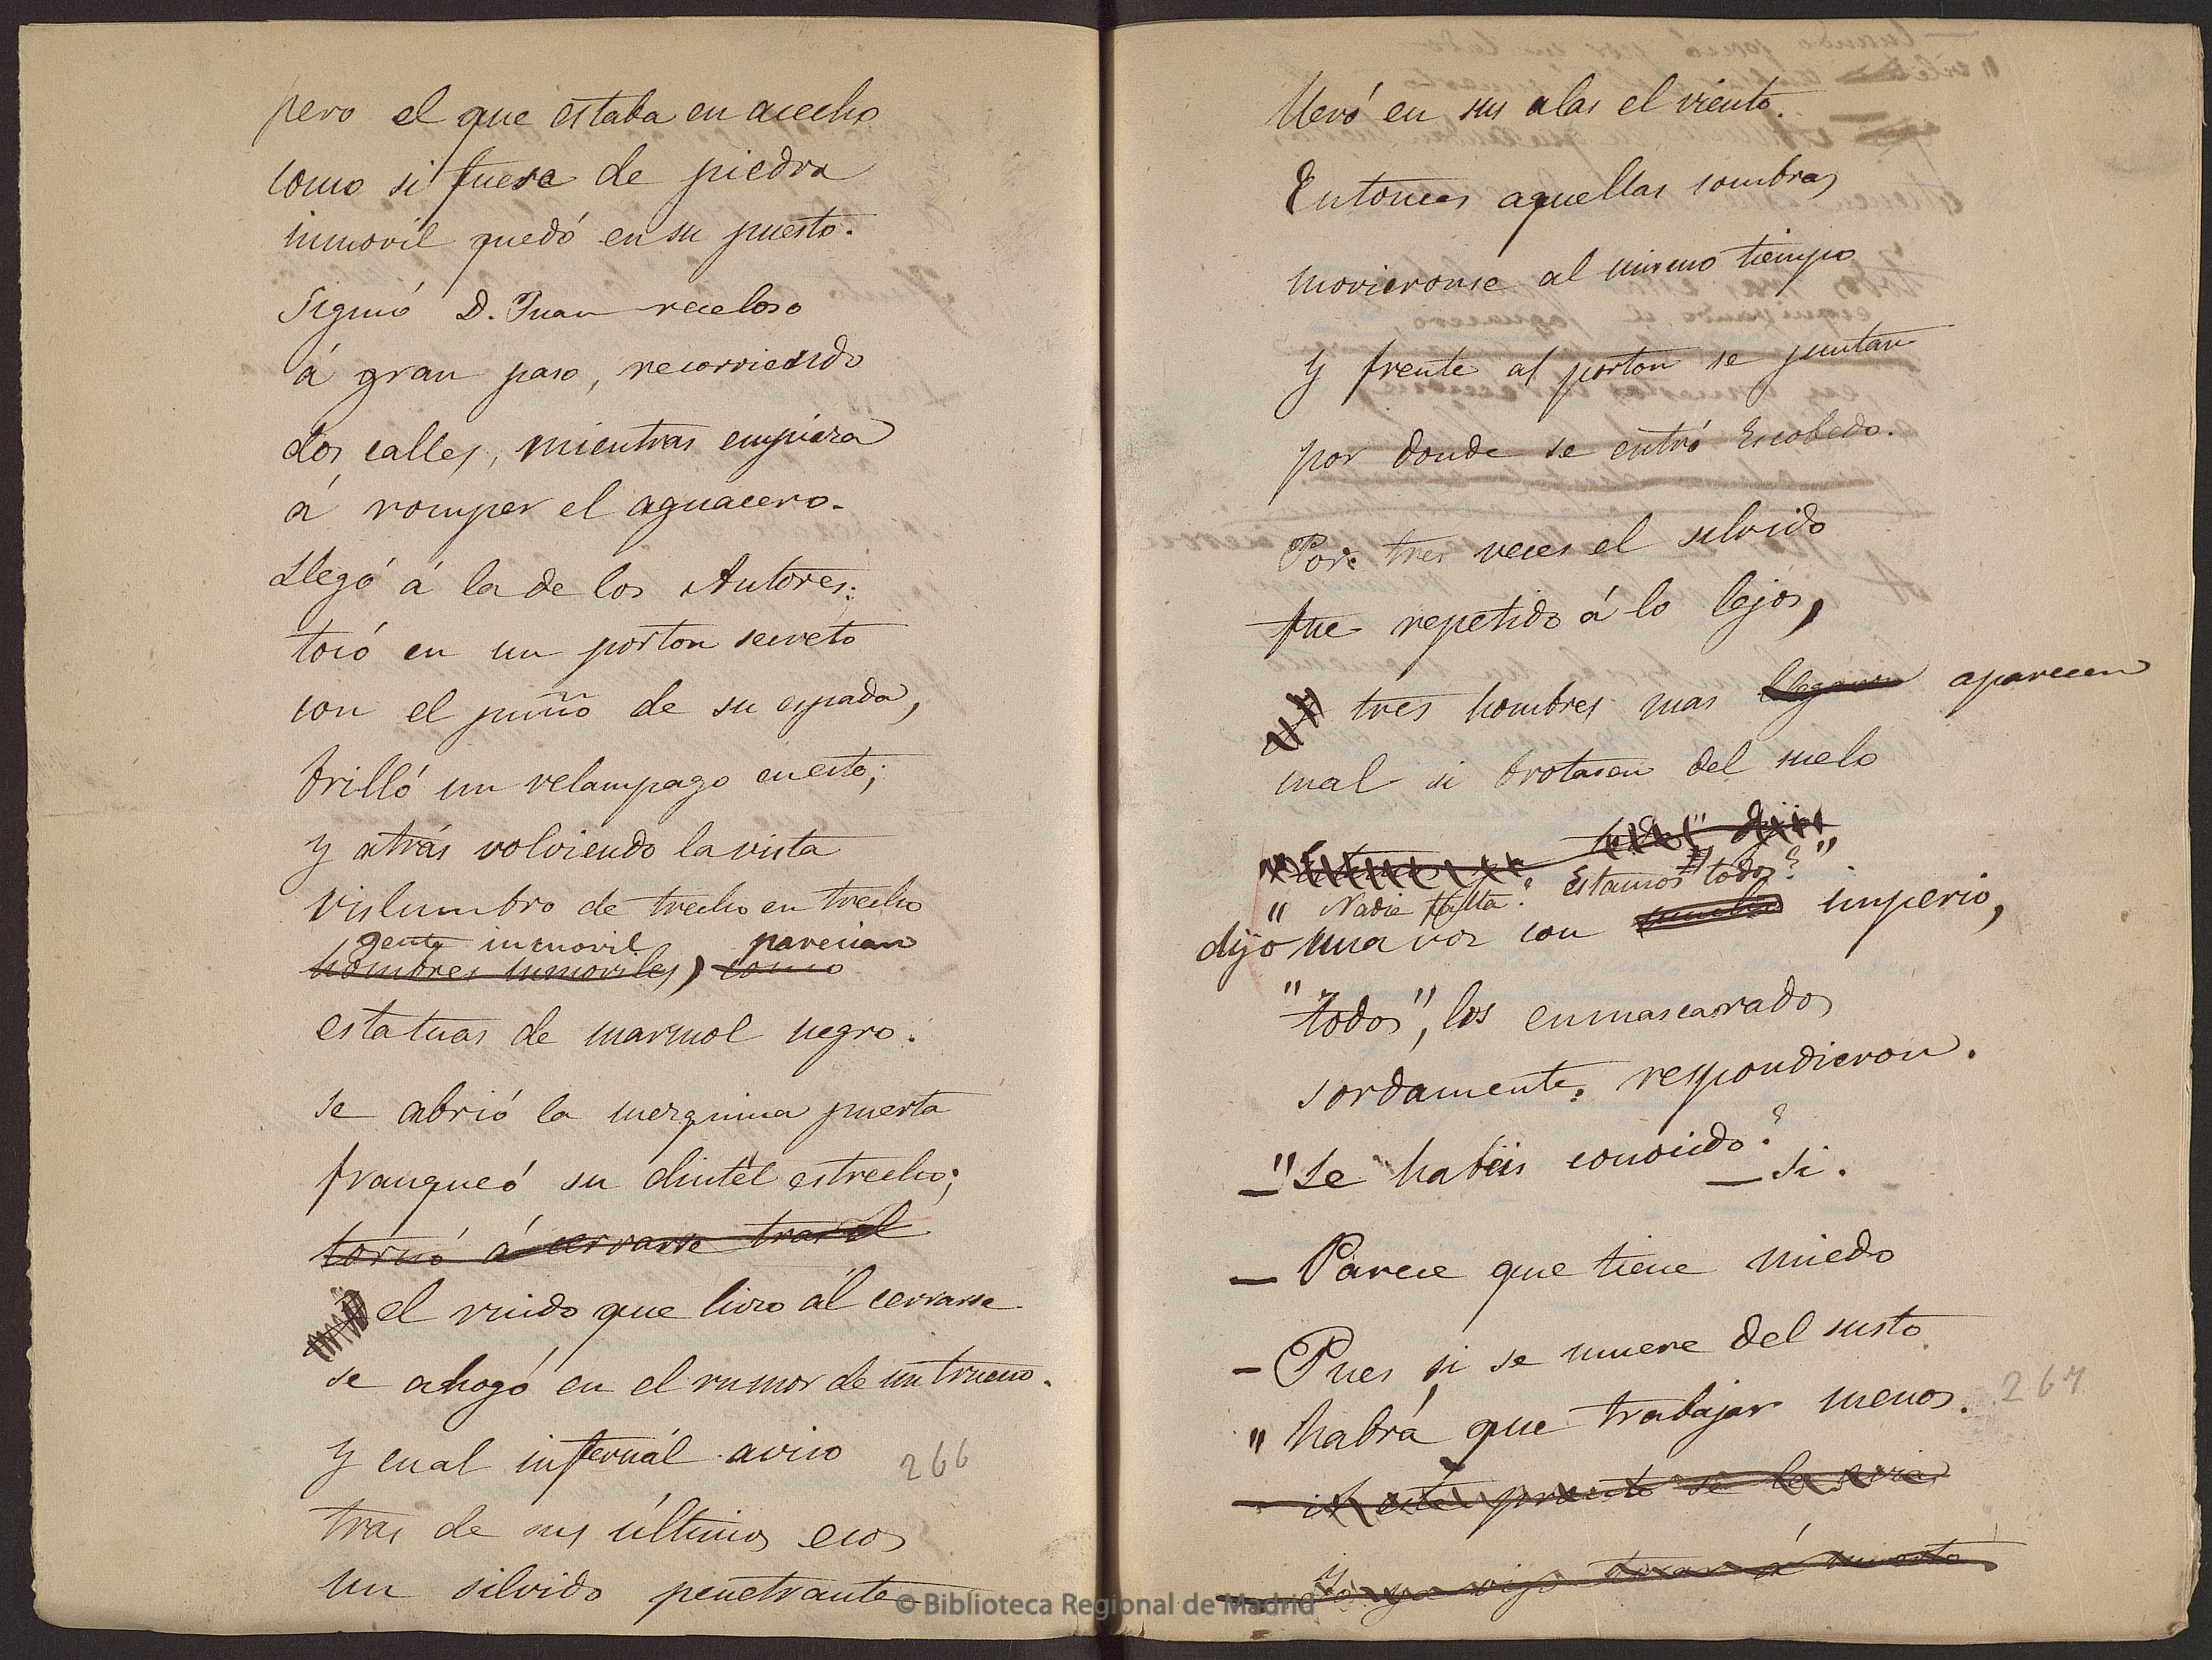 pero el que estaba en acecho
como si fuese de piedra
inmovil quedó en su puesto.
Siguió D. Juan receloso
á gran paso, recorriendo
dos calles, mientras empieza
á romper el aguacero.
Llegó á la de los Autores:
tocó en un porton secreto
con el puño de su espada,
brilló un relampago en esto;
y atrás volviendo la vista
vislumbro de trecho en trecho
gente inmovil parecian
hombres inmoviles, como
estatuas de marmol negro.
Se abrió la mezquina puerta
franqueó su dintel estrecho;
tornó á cerrarse tras el
el ruido que hizo al cerrarse
se ahogó en el rumor de un trueno.
y cual infernal aviso
266
tras de sus últimos ecos
un silvido penetrante
llevó en sus alas el viento.
Entonces aquellas sombras
movieronse al mismo tiempo
y frente al porton se juntan
por donde se entró Escobedo.
Por tres veces el silvido
fue repetido á lo lejos,
tres hombres mas llegaron aparecen
cual si brotasen del suelo
" Nadie falta? Estamos todos?"
dijo una voz con mucho imperio,
"Todos", los enmascarados
sordamente respondieron.
—"Le habéis conocido?
—Si.
— Parece que tiene miedo
— Pues si se muere del susto
" habrá que trabajar menos.
267
© Biblioteca Regional de Madrid